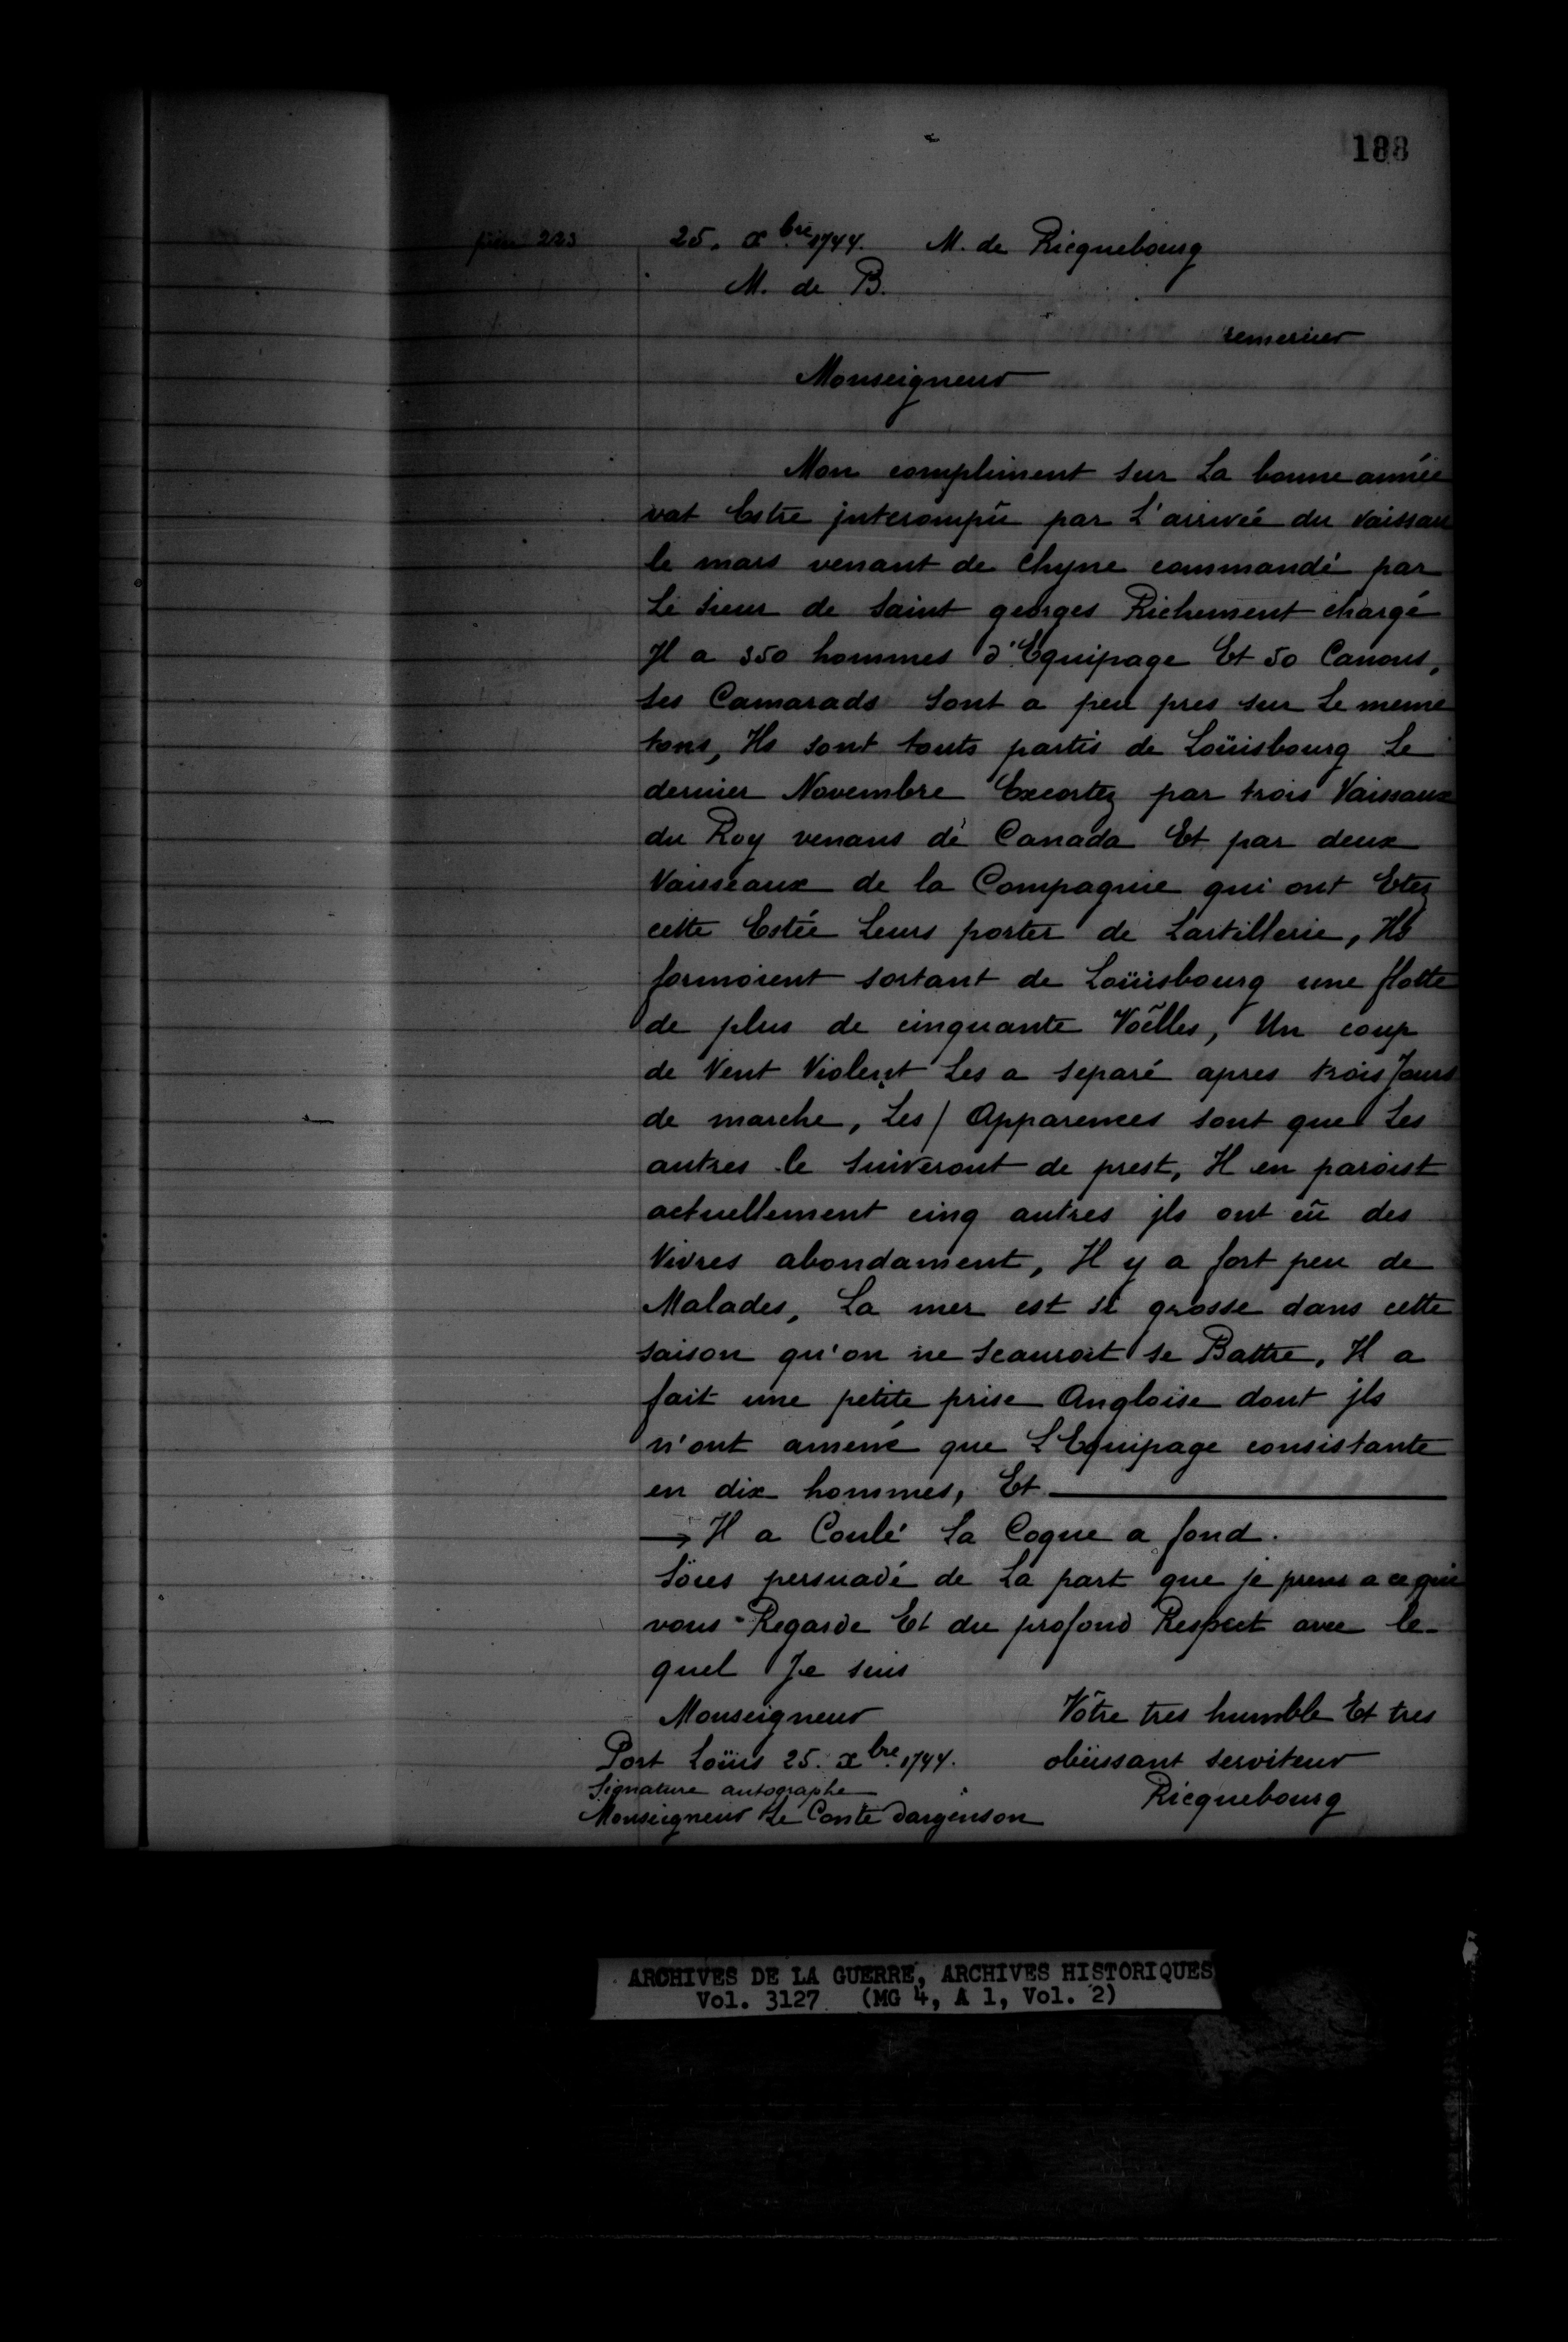 188
pièce 223
25. xbre 1744. M. de Ricquebourg
M. de B.
remercier
Monseigneur
Mon compliment sur La bonne année
vat Estre jnterompû par L'arrivée du vaissau
le mars venant de Chyne commandé par
Le sieur de Saint georges Richement chargé
Jl a 350 hommes d'Equipage Et 50 Canons,
Ses Camarads Sont a peu pres sur Le meme
tons, Ils sont touts partis de Loüisbourg Le
dernier Novembre Excortez par trois Vaissaux
du Roy venans de Canada Et par deux
Vaisseaux de la Compagnie qui ont Etez
cette Estée Leurs porter de Lartillerie, Ils
formoient sortant de Loüisbourg une flotte
de plus de cinquante Voëlles, Un coup
de Vent Violent Les a Separé apres trois Jours
de marche, Les / Apparences sont que Les
autres le Suiveront de prest, Il en paroist
actuellement cinq autres jls ont eû des
Vivres abondament, Il y a fort peu de
Malades, La mer est si grosse dans cette
saison qu'on ne Scauroit se Battre, Il a
fait une petite prise Angloise dont jls
n'ont amené que L'Equipage consistante
en dix hommes, Et
→ Il a Coulé La Coque a fond.
Söies persuadé de La part que je prens a ce qui
vous Regarde Et du profond Respect avec le-
quel Je suis
Monseigneur Vôtre tres humble Et tres
Port Loüis 25. xbre 1744. obëissant serviteur
Signature autographe Ricquebourg
Monseigneur Le Conte dargenson
ARCHIVES DE LA GUERRE, ARCHIVES HISTORIQUES
Vol. 3127 (MG 4, A 1, Vol. 2)